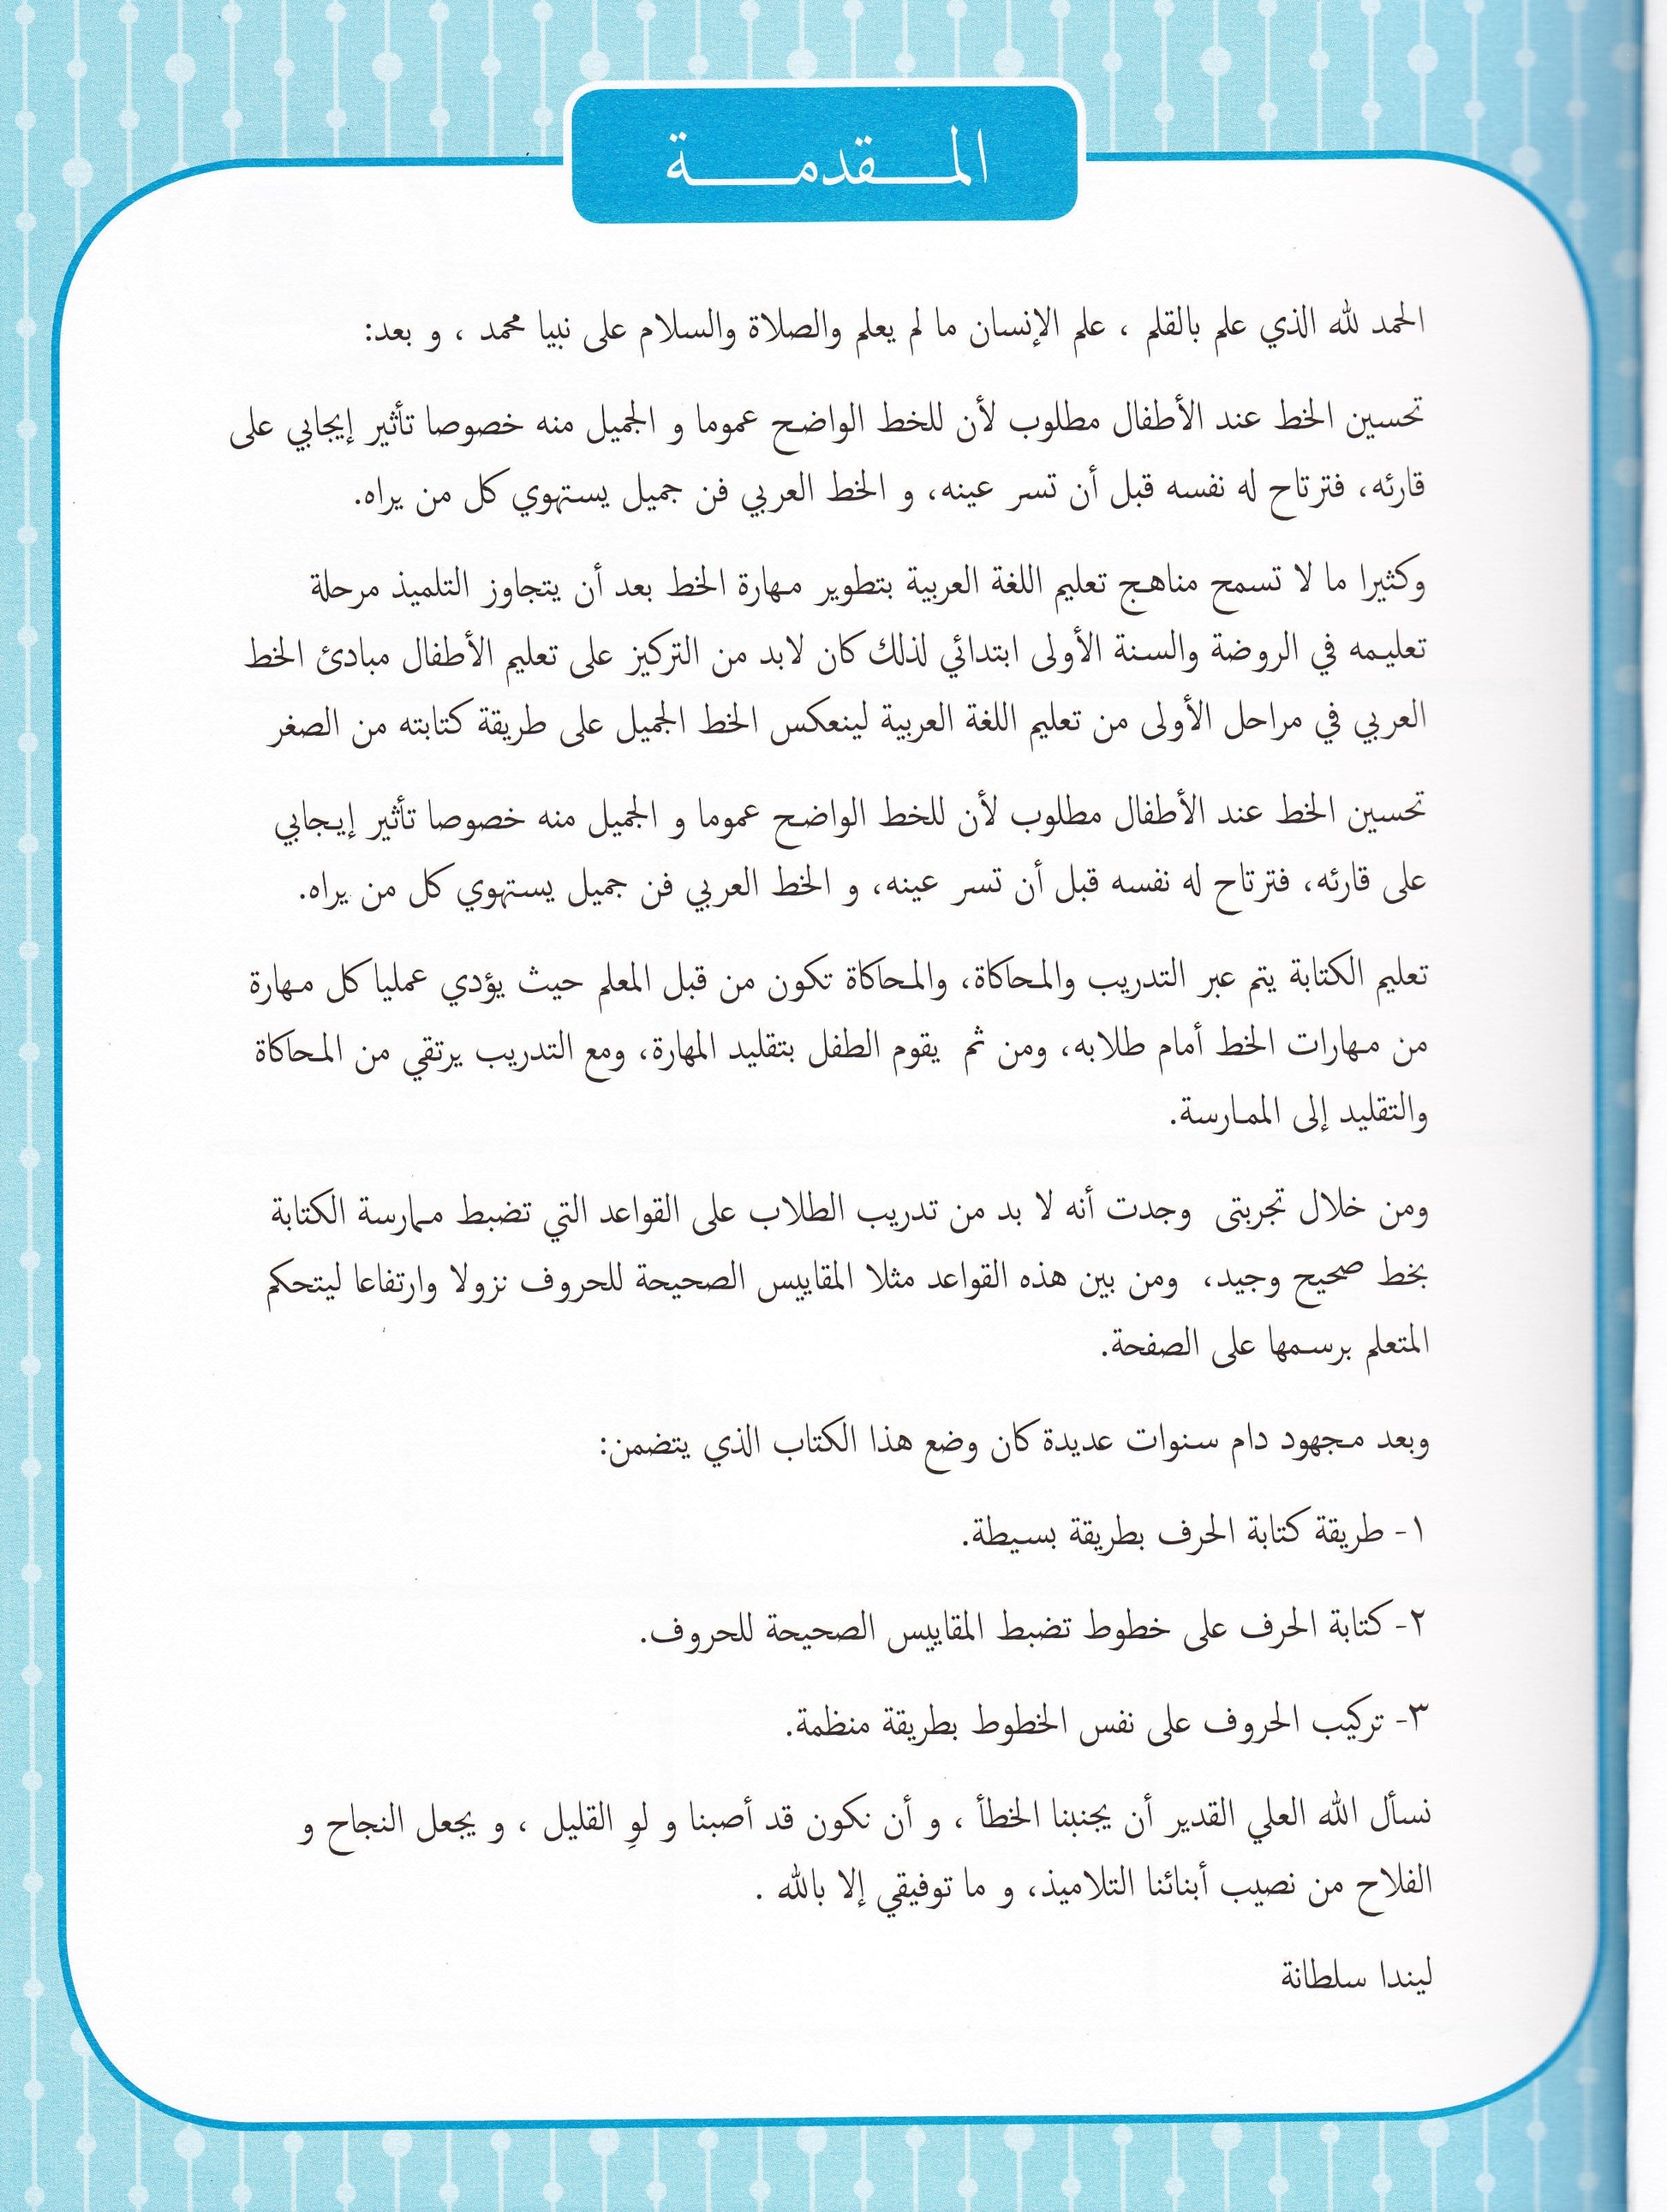 المـــقدمـــــة
الحمد لله الذي علم بالقلم ، علم الإنسان ما لم يعلم والصلاة والسلام على نبيا محمد ، و بعد:
تحسين الخط عند الأطفال مطلوب لأن للخط الواضح عموما و الجميل منه خصوصا تأثير إيجابي على
قارئه، فترتاح له نفسه قبل أن تسر عينه، و الخط العربي فن جميل يستهوي كل من يراه.
وكثيرا ما لا تسمح مناهج تعليم اللغة العربية بتطوير مهارة الخط بعد أن يتجاوز التلميذ مرحلة
تعليمه في الروضة والسنة الأولى ابتدائي لذلك كان لابد من التركيز على تعليم الأطفال مبادئ الخط
العربي في مراحل الأولى من تعليم اللغة العربية لينعكس الخط الجميل على طريقة كتابته من الصغر
تحسين الخط عند الأطفال مطلوب لأن للخط الواضح عموما و الجميل منه خصوصا تأثير إيجابي
على قارئه، فترتاح له نفسه قبل أن تسر عينه، و الخط العربي فن جميل يستهوي كل من يراه.
تعليم الكتابة يتم عبر التدريب والمحاكاة، والمحاكاة تكون من قبل المعلم حيث يؤدي عمليا كل مهارة
من مهارات الخط أمام طلابه، ومن ثم يقوم الطفل بتقليد المهارة، ومع التدريب يرتقي من المحاكاة
والتقليد إلى الممارسة.
ومن خلال تجربتى وجدت أنه لا بد من تدريب الطلاب على القواعد التي تضبط ممارسة الكتابة
بخط صحيح وجيد، ومن بين هذه القواعد مثلا المقاييس الصحيحة للحروف نزولا وارتفاعا ليتحكم
المتعلم برسمها على الصفحة.
وبعد مجهود دام سنوات عديدة كان وضع هذا الكتاب الذي يتضمن:
١- طريقة كتابة الحرف بطريقة بسيطة.
٢- كتابة الحرف على خطوط تضبط المقاييس الصحيحة للحروف.
٣- تركيب الحروف على نفس الخطوط بطريقة منظمة.
نسأل الله العلي القدير أن يجنبنا الخطأ ، و أن نكون قد أصبنا و لوِ القليل ، و يجعل النجاح و
الفلاح من نصيب أبنائنا التلاميذ، و ما توفيقي إلا بالله .
ليندا سلطانة